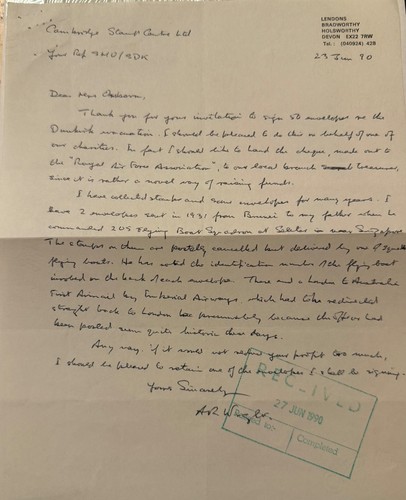 LENDONS
BRADWORTHY
HOLSWORTHY
DEVON EX22 7RW
Tel: (040924) 428
23 Jun 90
Cambridge Stamp Centre Ltd
Your Ref
Dear Mrs
Thank you for your invitation to sign 50 envelopes re the
Dunkirk evacuation. I should be pleased to do this on behalf of one of
our charities. In fact I should like to hand the cheque, made out to
the "Royal Air Force Association", to our local branch treasurer,
since it is rather a novel way of raising funds.
I have collected stamps and some envelopes for many years. I
have 2 envelopes sent in 1931 from Brunei to my father when he
commanded 205 Flying Boat Squadron at Seletar in Singapore.
The stamps on them are postally cancelled but delivered by one of
flying boats. He has noted the identification number of the flying boat
involved on the back of each envelope. These and a to Australia
First Airmail by Imperial Airways which had to be redirected
straight back to London presumably because the had
been posted seem quite historic these days.
Any way, if it would not your profit too much,
I should be pleased to retain one of the envelopes I shall be signing.
Yours Sincerely
RECEIVED
27 JUN 1990
Completed